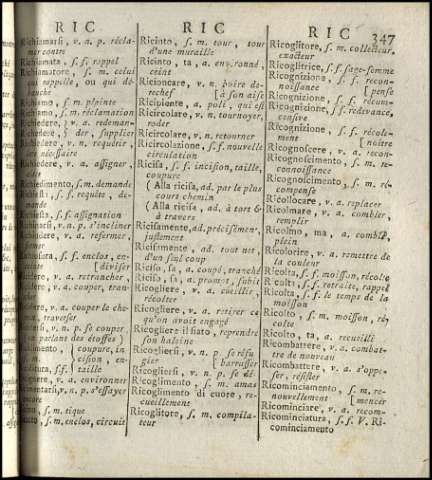 RIC
Richiamarsi, v. n. p. récla-
mer contre
Richiamata, s. f. rappel
Richiamatore, s. m. celui
qui rappelle, ou qui dé-
bauche
Richiamo, s. m. plainte
s. m. réclamation
v. a. redeman-
der, supplier
v. n. requérir
être nécessaire
v. a. assigner
Richiedimento, s. m. demande
s. f. requête, de-
mande
s. f. assignation
v. n. p. s'incliner
v. a. refermer
fermer
s. f. enclos, en-
ceinte [diviser
v. a. retrancher
v. a. couper, tran-
cher
v. a. couper le che-
min, traverser
v. n. p. se couper
(en parlant des étoffes)
coupure, in-
cision, en-
s. f. taille
v. a. environner
v. n. p. s'essayer
encore
s. m. tique
s. m. enclos, circuit
RIC
Ricinto, s. m. tour, tour
d'une muraille
Ricinto, ta, a. environné,
ceint
Ricioncare, v. n. boire de-
rechef [à son aise
Ricipiente, a. poli, qui est
Ricircolare, v. n. tournoyer,
roder
Ricircolare, v. n. retourner
Ricircolazione, s. f. nouvelle
circulation
Ricisa, s. f. incision, taille,
coupure
(Alla ricisa, ad. par le plus
court chemin
(Alla ricisa, ad. à tors &
à travers
Ricisamente, ad. précisément,
justement
Ricisamente, ad. tout net,
d'un seul coup
Riciso, sa, a. coupé, tranché
Riciso, sa, a. prompt, subit
Ricogliere, v. a. cueillir,
récolter
Ricogliere, v. a. retirer ce
qu'on avoit engagé
Ricogliere il fiato, reprendre
son haleine
Ricogliersi, v. n. p. se réfu-
gier [barrasser
Ricogliersi, v. n. p. se dé-
Ricoglimento, s. m. amas
Ricoglimento di cuore, re-
cueillement
Ricoglitore, s. m. compila-
teur
RIC 347
Ricoglitore, s. m. collecteur,
exacteur
Ricoglitrice, s. f. sage-femme
Ricognizione, s. f. recon-
noissance [pense
Ricognizione, s. f. récom-
Ricognizione, s. f. redevance,
censive
Ricognizione, s. f. récole-
ment [noître
Ricognoscere, v. a. recon-
Ricognoscimento, s. m. re-
connoissance
Ricognoscimento, s. m. ré-
compense
Ricollocare, v. a. replacer
Ricolmare, v. a. combler,
remplir
Ricolmo, ma, a. comblé,
plein
Ricolorire, v. a. remettre de
la couleur
Ricolta, s. f. moisson, récolte
Ricolta, s. f. retraite, rappel
Ricolta, s. f. le temps de la
moisson
Ricolto, s. m. moisson, ré-
colte
Ricolto, ta, a. recueilli
Ricombattere, v. a. combat-
tre de nouveau
Ricombattere, v. a. s'oppo-
ser, résister
Ricominciamento, s. m. re-
nouvellement [mencer
Ricominciare, v. a. recom-
Ricominciatura, s. f. V. Ri-
cominciamento